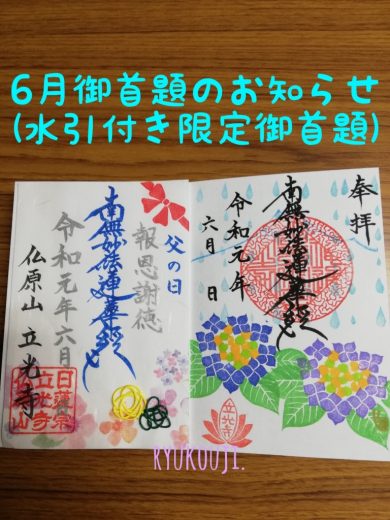 6月御首題のお知らせ
(水引付き限定御首題)
奉拝
南無妙法蓮華経
令和元年
六月 日
立光寺
父の日
報恩謝徳
南無妙法蓮華経
令和元年六月
仏原山 立光寺
日蓮宗
立光寺
RYUKOUJI.